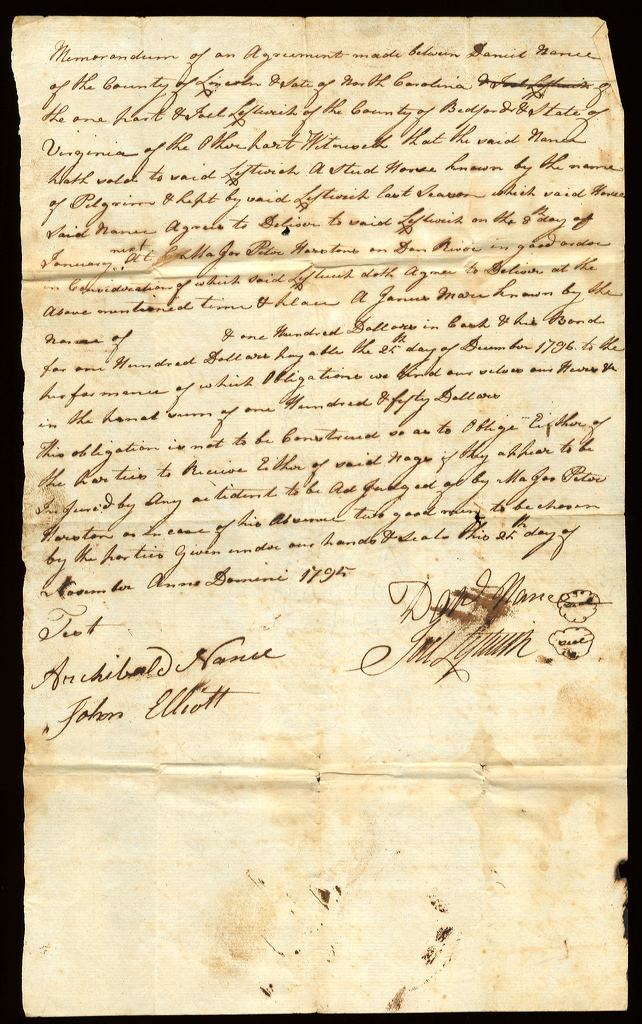 Memorandum of an Agreement made between Daniel Nance
of the County of Lincoln & State of North Carolina & Joel Leftwich of
the one part & Joel Leftwich of the County of Bedford & State of
Virginia of the Other part Witnesseth that the said Nance
hath sold to said Leftwich A Stud Horse known by the name
of Pilgrim & kept by said Leftwich last Season which said Horse
said Nance Agrees to Deliver to said Leftwich on the 8th day of
January next At Major Peter Hairstons on Dan River in good order
in Consideration of which said Leftwich doth Agree to Deliver at the
Above mentioned time & place A Janus Mare known by the
name of & one Hundred Dollars in Cash & his Bond
for one Hundred Dollars payable the 25th day of December 1796 to the
performance of which Obligations we bind our selves our Heires &c
in the penal sum of one Hundred & fifty Dollars
This obligation is not to be Construed so as to Oblige Either of
the parties to Recieve Either of said Nags if they appear to be
Injured by Any accident to be Adjudged of by Major Peter
Hairston or in case of his Absence two good men to be chosen
by the parties Given under our hands & seals this 25th day of
November Anno Domini 1795
Test
Danl Nance seal
Joel Leftwich seal
Archibald Nance
John Elliott